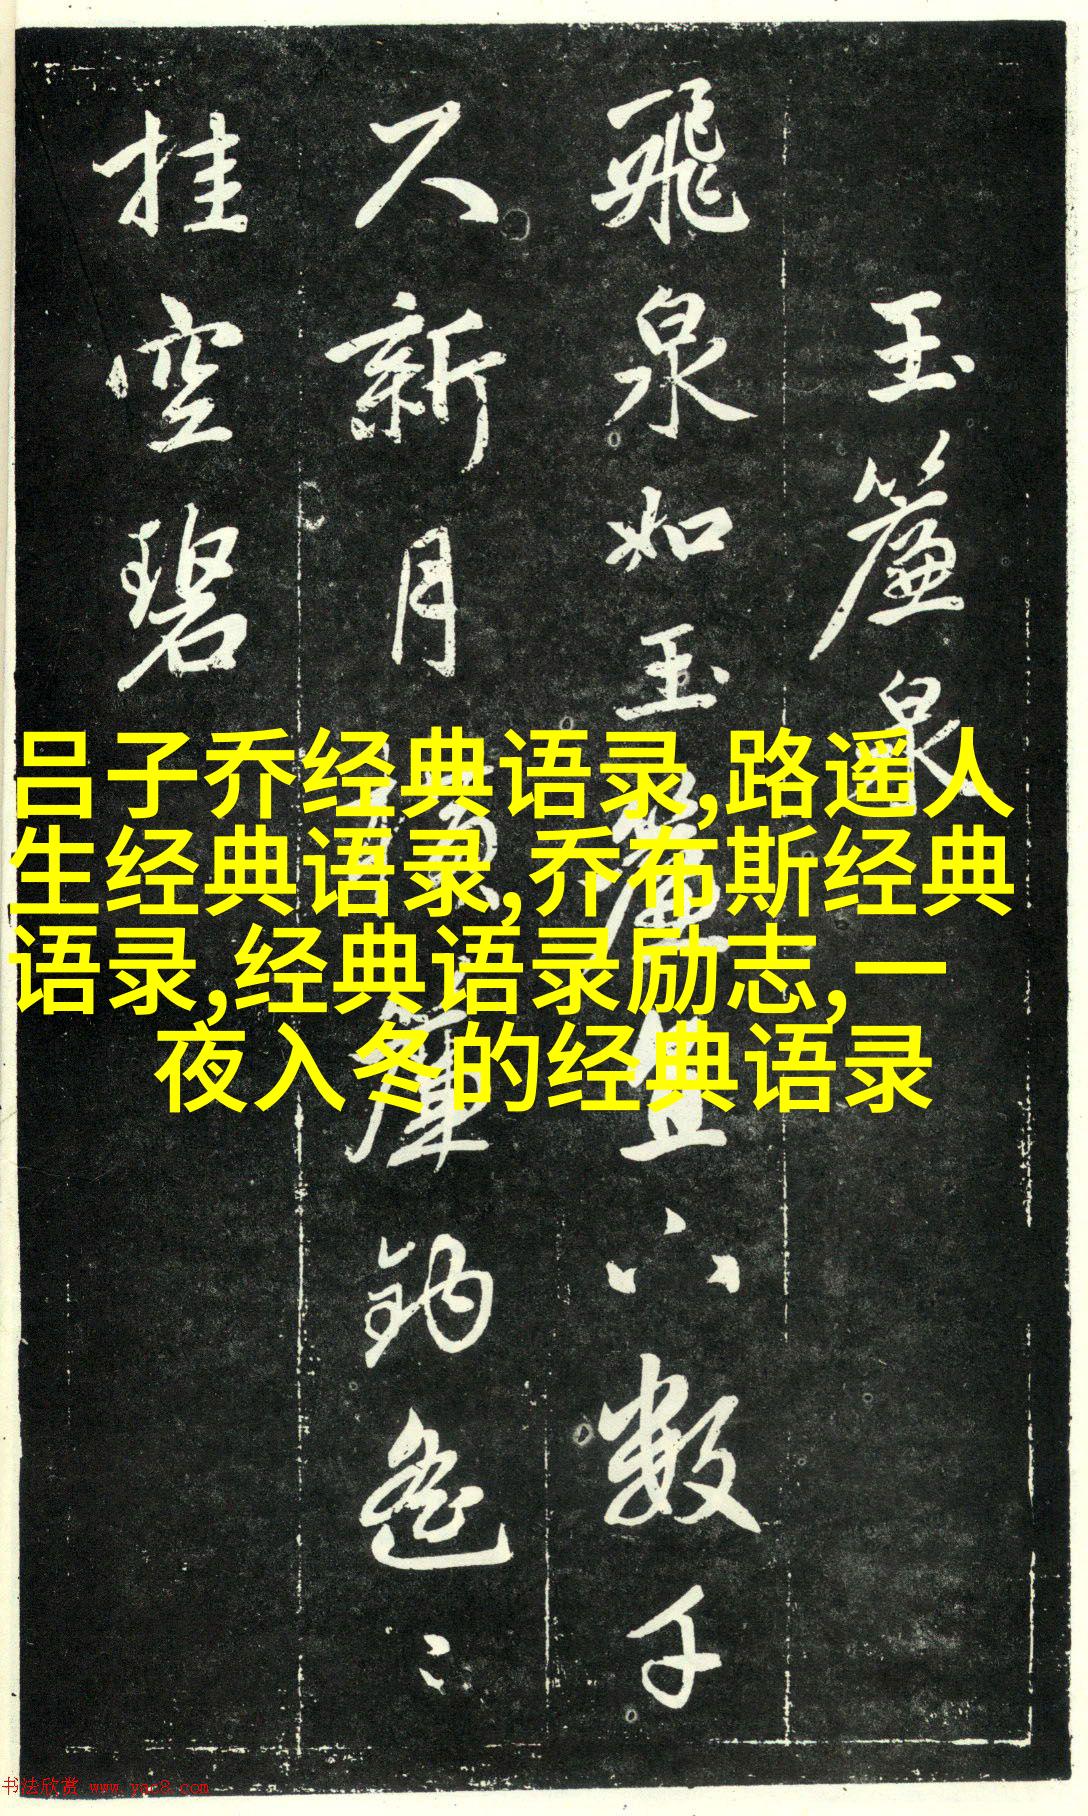 玉簾泉
飛泉如玉簾直下數千
尺新月簾鈎遙〻
挂空碧
吕子乔经典语录,路遥人
生经典语录,乔布斯经典
语录,经典语录励志,一
夜入冬的经典语录
书法欣赏 www.yac8.com